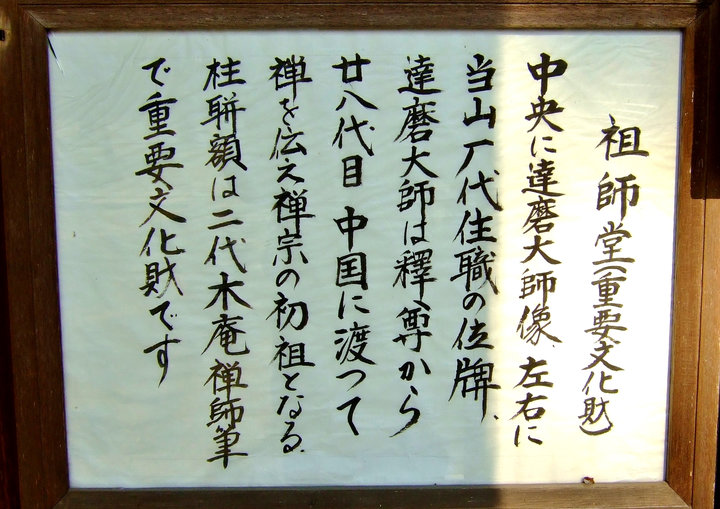 祖師堂(重要文化財)
中央に達磨大師像、左右に
当山歴代住職の位牌、
達磨大師は釋尊から
廿八代目中国に渡つて
禅を伝え禅宗の初祖となる
柱聨額は二代木庵禅師筆
で重要文化財です